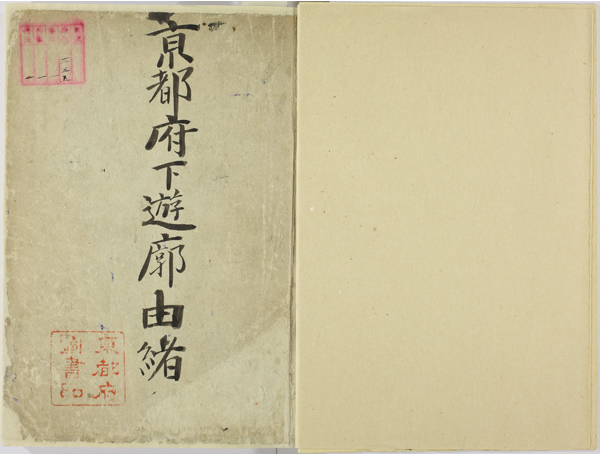 京都府下遊廓由緒
京都府
圖書印